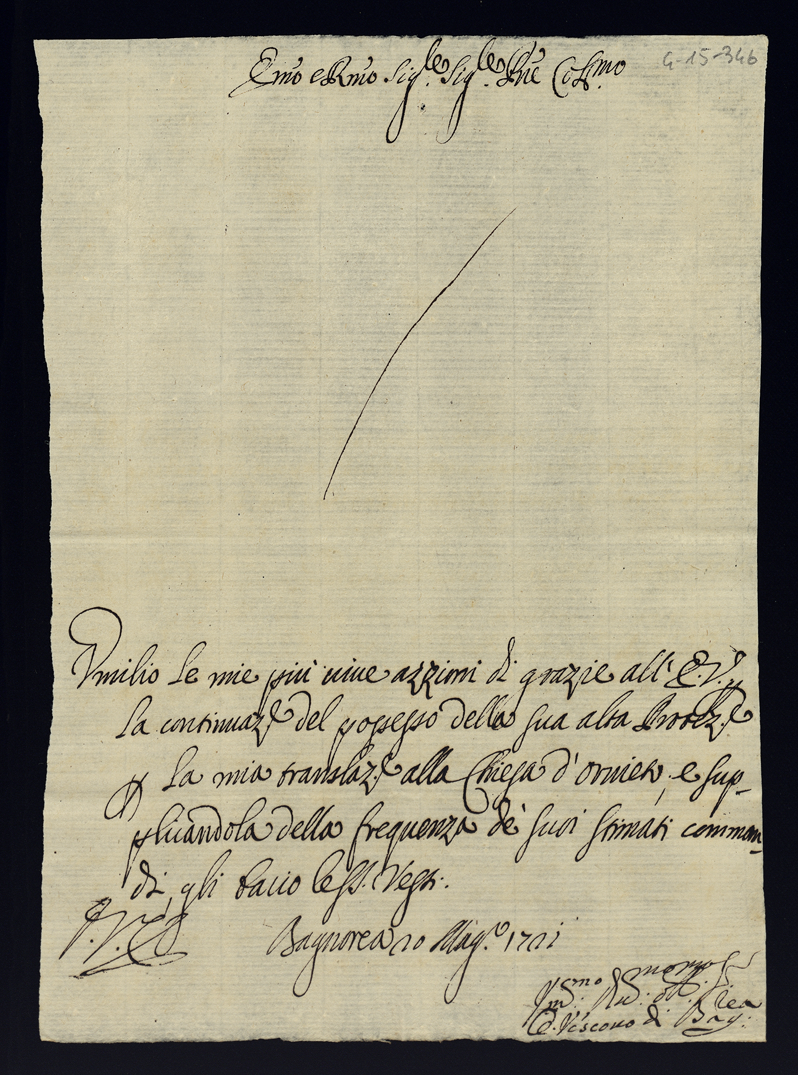 G-15-346
Em̃o e Rm̃o Sig.re Sig.re Pñe Col.mo
Vmilio le mie più viue azzioni di grazie all' E.V. p
la continuaz.e del possesso della sua alta Protez.e
p la mia translaz.e alla Chiesa d'Oruieto, e sup-
plicandola della frequenza de' suoi stimati comman-
di, gli bacio le SS. Vesti.
Bagnorea 20 Mag.o 1721
Vm.mo
Vescouo di Bag.rea